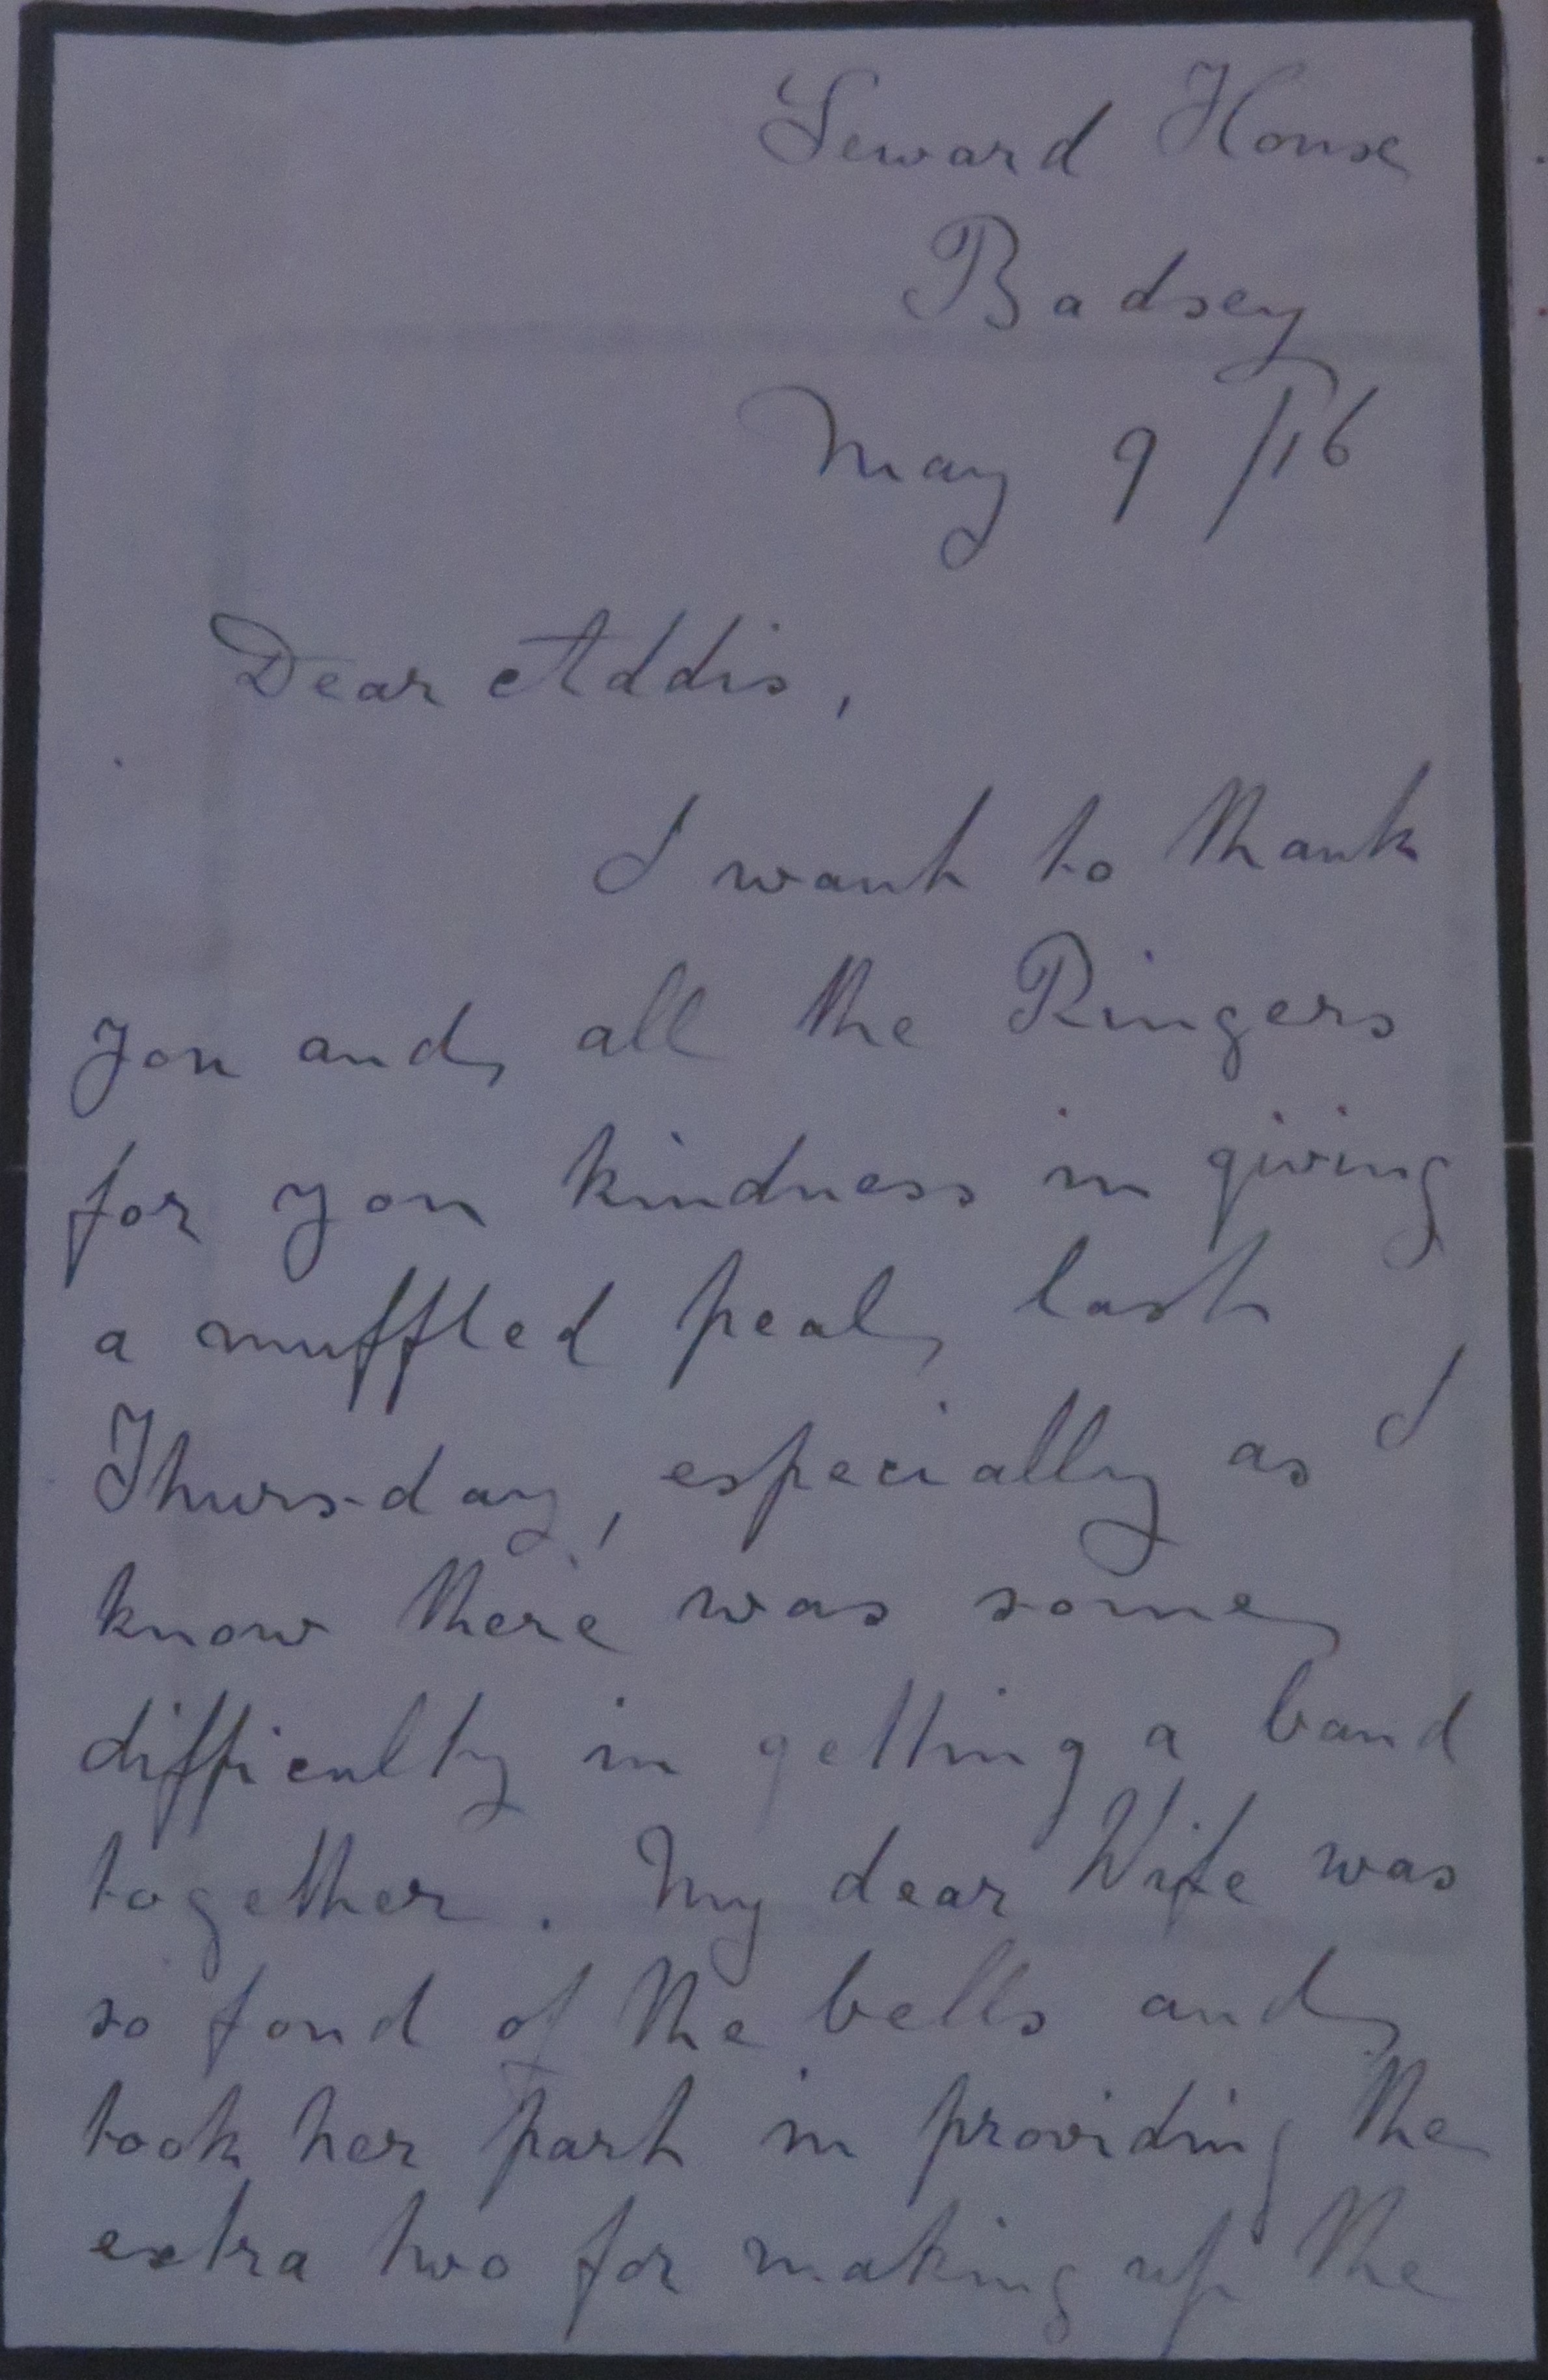 Seward House
Badsey
May 9/16
Dear Addis,
I want to thank
you and all the Ringers
for you kindness in giving
a muffled peal last
Thursday, especially as I
know there was some
difficulty in getting a band
together. My dear Wife was
so fond of the bells and
took her part in providing the
extra two for making up the